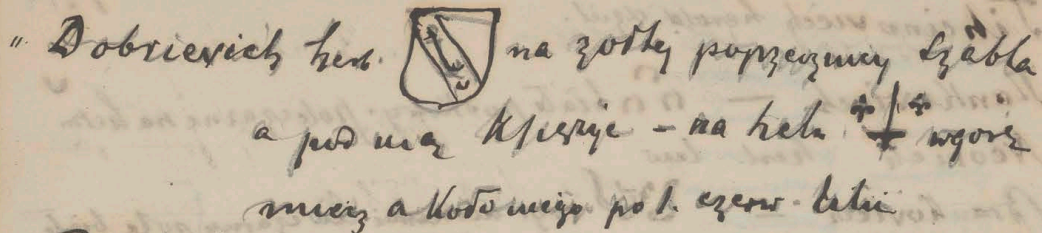 " Dobrievich herb. na żołtej poprzecznicy Szabla
a pod nią Księżyc – na heł. wgorę
miecz a koło niego po 1. czerw. lelii